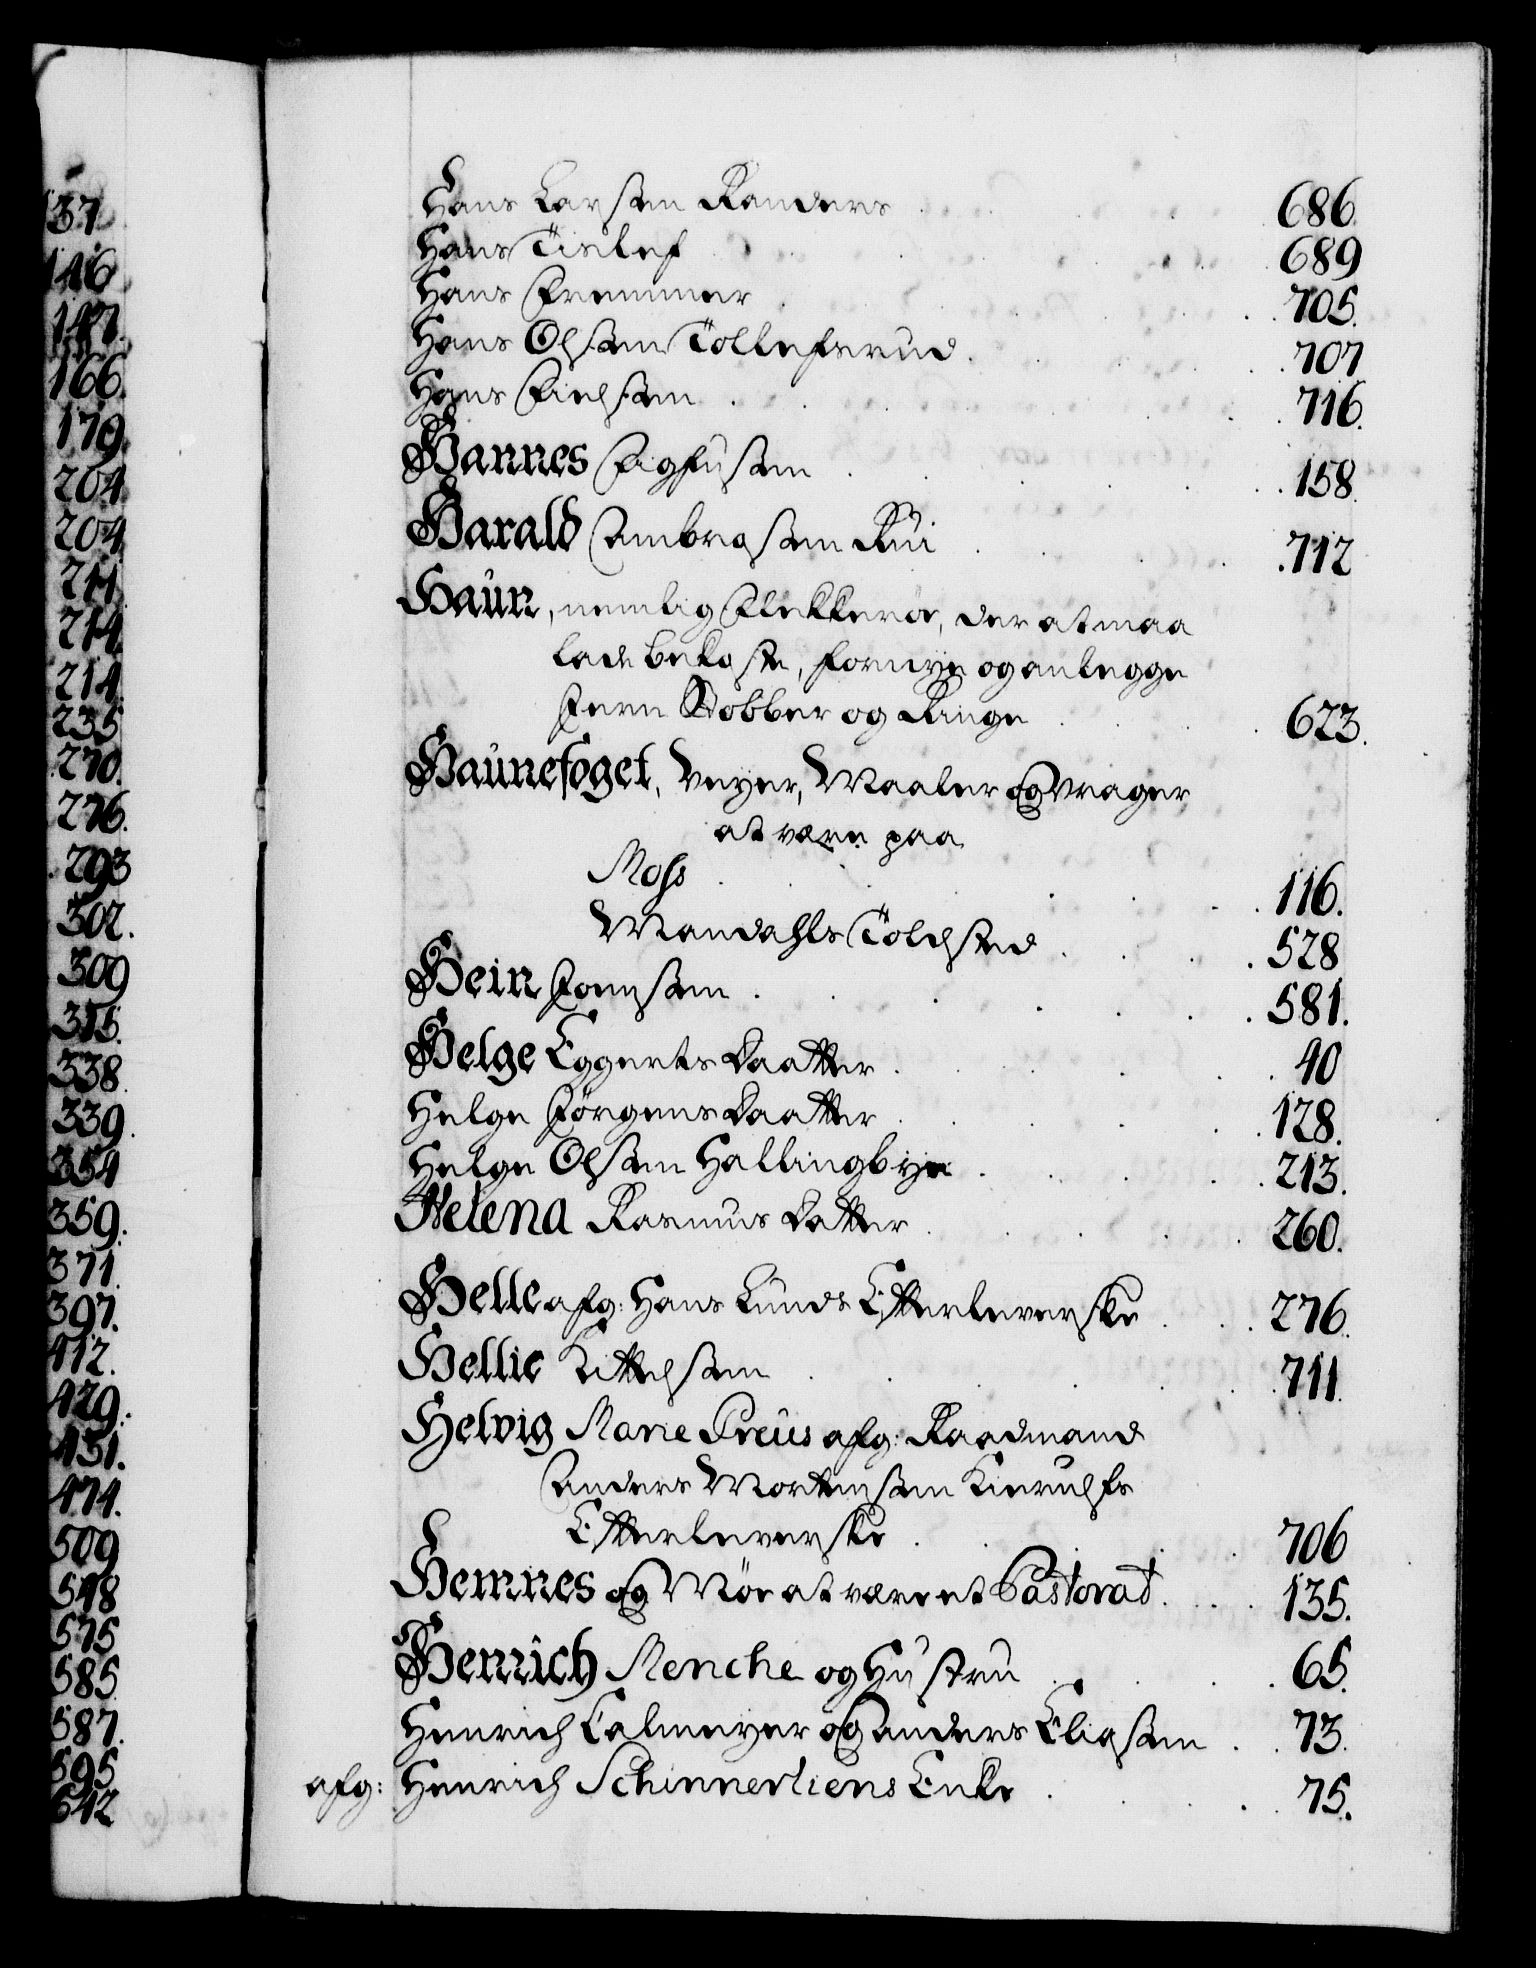 137
146
147.
166.
179.
204.
204
211.
214.
214.
235
270.
276.
293
302.
309
315.
338.
339.
354
359.
371.
397.
412.
429.
451.
474.
509
548
575
585
587.
595
642
Hans Larsen Randers 686.
Hans Tislef 689
Hans Fremmer 705.
Hans Olsen Tollefsrud 707
Hans Nielsen 716.
Hannes Sigfusen 158
Harald Ambrosen Rui 712
Haun, nemlig Flekkeröe, der at maa
lade bekoste, fornye og anlegge
Jern Kobber og Ringe 623.
Haunefoget, Veyer, Maaler og Vrager
at være paa
Moss 116.
Mandahls Toldsted 528
Hein Joensen 581.
Helge Eggerts Daatter 40
Helge Jörgens Daatter 128.
Helge Olsen Hallingbye 213.
Helena Rasmus Datter 260.
Helle afg: Hans Lunds Efterleverske 276.
Hellie Kittelsen 711.
Helvig Marie Preus afg: Raadmand
Anders Mortensen Kierulfs
Efterleverske 706
Hemnes og Möe at være et Pastorat 135.
Henrich Menche og Hustru 65.
Henrich Calmeyer og Anders Eliasen 73.
afg: Henrich Schinnerliens Enke 75.